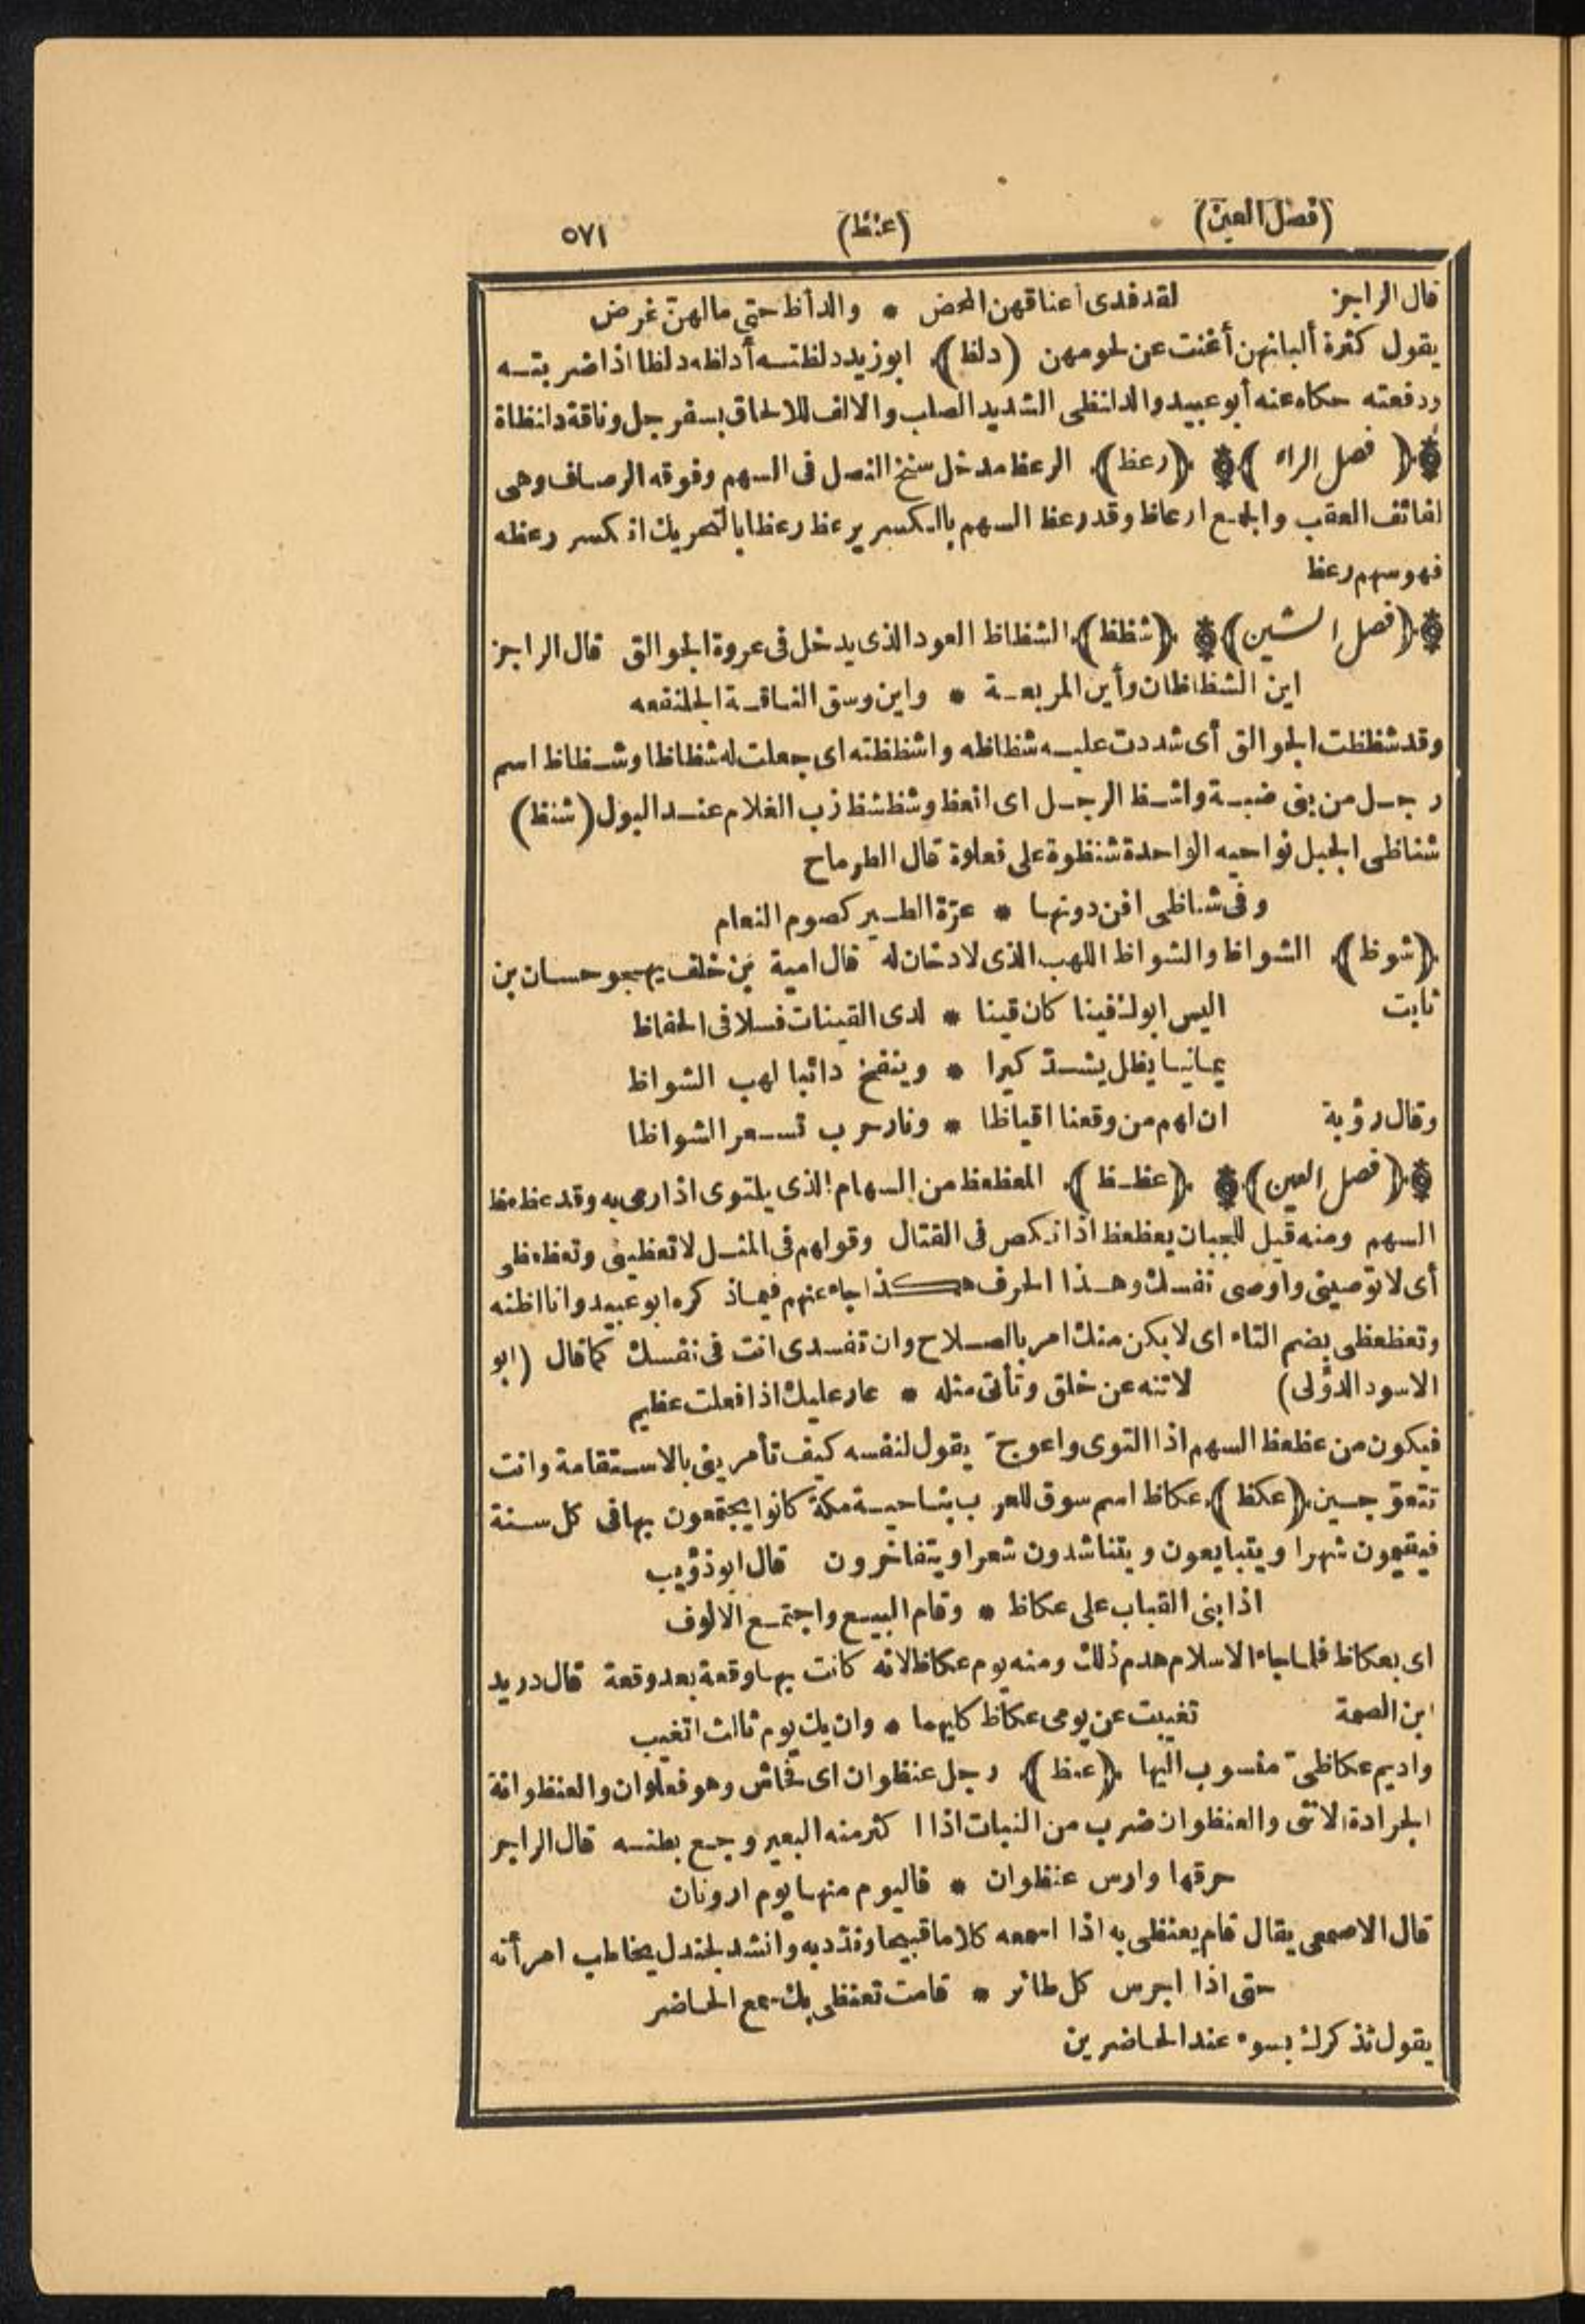 (فصل العين) (عنظ) ٥٧١
قال الراجز لقد فدى أعناقهن المحض * والدأظ حتى مالهنّ غرض
يقول كثرة ألبانهن أغنت عن لحومهن (دلظ) ابو زيد دلظته أدلظه دلظا اذا ضربته
ودفعته حكاه عنه أبو عبيد والدلنظى الشديد الصلب والالف للالحاق بسفرجل وناقة دلنظاة
(فصل الراء) (رعظ) الرعظ مدخل سنخ النصل فى السهم وفوقه الرصاف وهى
لفائف العقب والجمع ارعاظ وقد رعظ السهم بالكسر يرعظ رعظا بالتحريك انكسر رعظه
فهو سهم رعظ
(فصل الشين) (شظظ) الشظاظ العود الذى يدخل فى عروة الجوالق قال الراجز
اين الشظاظان وأين المربعة * واين وسق الناقة الجلنفعه
وقد شظظت الجوالق أى شددت عليه شظاظه واشظظته اى جعلت له شظاظا وشظاظ اسم
رجل من بنى ضبة واشظ الرجل اى انعظ وشظشظ زب الغلام عند البول (شنظ)
شناظى الجبل نواحيه الواحدة شنظوة على فعلوة قال الطرماح
وفى شناظى اقن دونها * عرّة الطير كصوم النعام
(شوظ) الشواظ والشواظ اللهب الذى لا دخان له قال امية بن خلف يهجو حسان بن
ثابت اليس ابوك فينا كان قينا * لدى القينات فسلا فى الحفاظ
يمانيا يظل يشدّ كيرا * وينفخ دائبا لهب الشواظ
وقال رؤبة ان لهم من وقعنا اقياظا * ونار حرب تسعر الشواظا
(فصل العين) (عظظ) المعظعظ من السهام الذى يلتوى اذا رمى به وقد عظعظ
السهم ومنه قيل للجبان يعظعظ اذا نكص فى القتال وقولهم فى المثل لا تعظينى وتعظعظى
أى لا توصينى واوصى نفسك وهذا الحرف هكذا جاء عنهم فيما ذكره ابو عبيد وانا اظنه
وتعظعظى بضم التاء اى لا يكن منك امر بالصلاح وان تفسدى انت فى نفسك كما قال (ابو
الاسود الدؤلى) لا تنه عن خلق وتأتى مثله * عار عليك اذا فعلت عظيم
فيكون من عظعظ السهم اذا التوى واعوجّ يقول لنفسه كيف تأمرينى بالاستقامة وانت
تتعوجين (عكظ) عكاظ اسم سوق للعرب بناحية مكة كانوا يجتمعون بها فى كل سنة
فيقيمون شهرا ويتبايعون ويتناشدون شعرا ويتفاخرون قال ابو ذؤيب
اذا بنى القباب على عكاظ * وقام البيع واجتمع الالوف
اى بعكاظ فلما جاء الاسلام هدم ذلك ومنه يوم عكاظ لانه كانت بها وقعة بعد وقعة قال دريد
ابن الصمة تغيبت عن يومى عكاظ كليهما * وان يك يوم ثالث اتغيب
واديم عكاظىّ منسوب اليها (عنظ) رجل عنظوان اى فحاش وهو فعلوان والعنظوانة
الجرادة الانثى والعنظوان ضرب من النبات اذا اكثر منه البعير وجع بطنه قال الراجز
حرقها وارس عنظوان * فاليوم منها يوم ارونان
قال الاصمعى يقال قام يعنظى به اذا اسمعه كلاما قبيحا وندّد به وانشد لجندل يخاطب امرأته
حتى اذا اجرس كل طائر * قامت تعنظى بك سمع الحاضر
يقول تذكرك بسوء عند الحاضرين